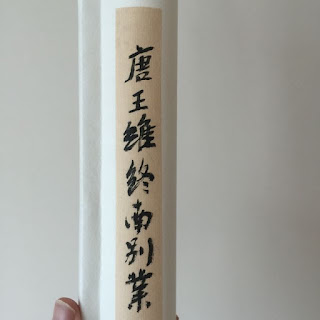 唐王維終南別業